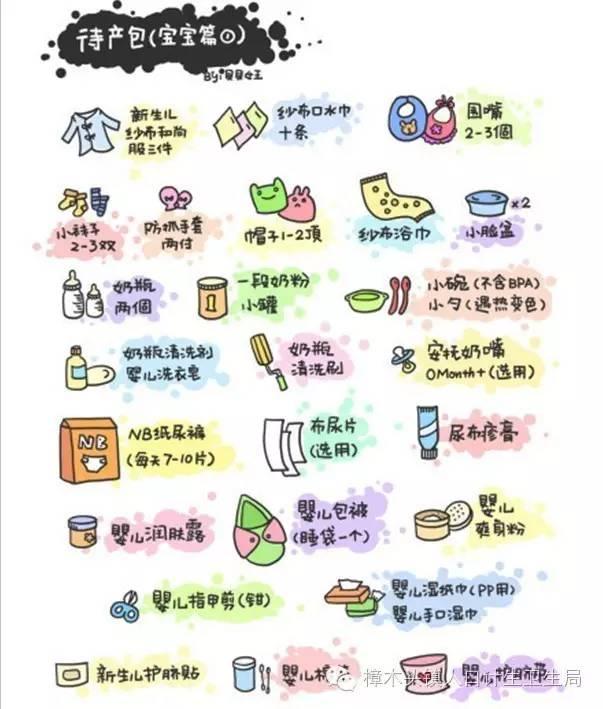 待产包(宝宝篇①)
By:贝贝女王
新生儿
纱布和尚
服三件
纱布口水巾
十条
围嘴
2-3個
小袜子
2-3双
防抓手套
两付
帽子1-2頂
纱布浴巾
×2
小脸盆
奶瓶
两個
一段奶粉
小罐
小碗(不含BPA)
小勺(遇热变色)
奶瓶清洗剂
婴儿洗衣皂
奶瓶
清洗刷
安抚奶嘴
0Month+(选用)
NB
NB纸尿裤
(每天7-10片)
布尿片
(选用)
尿布疹膏
嬰儿润肤露
嬰儿包被
(睡袋一个)
嬰儿
爽身粉
嬰儿指甲剪(钳)
嬰儿湿纸巾(PP用)
嬰儿手口湿巾
新生儿护脐贴
嬰儿棉
嬰儿护脐带
樟木头镇人口计生卫生局